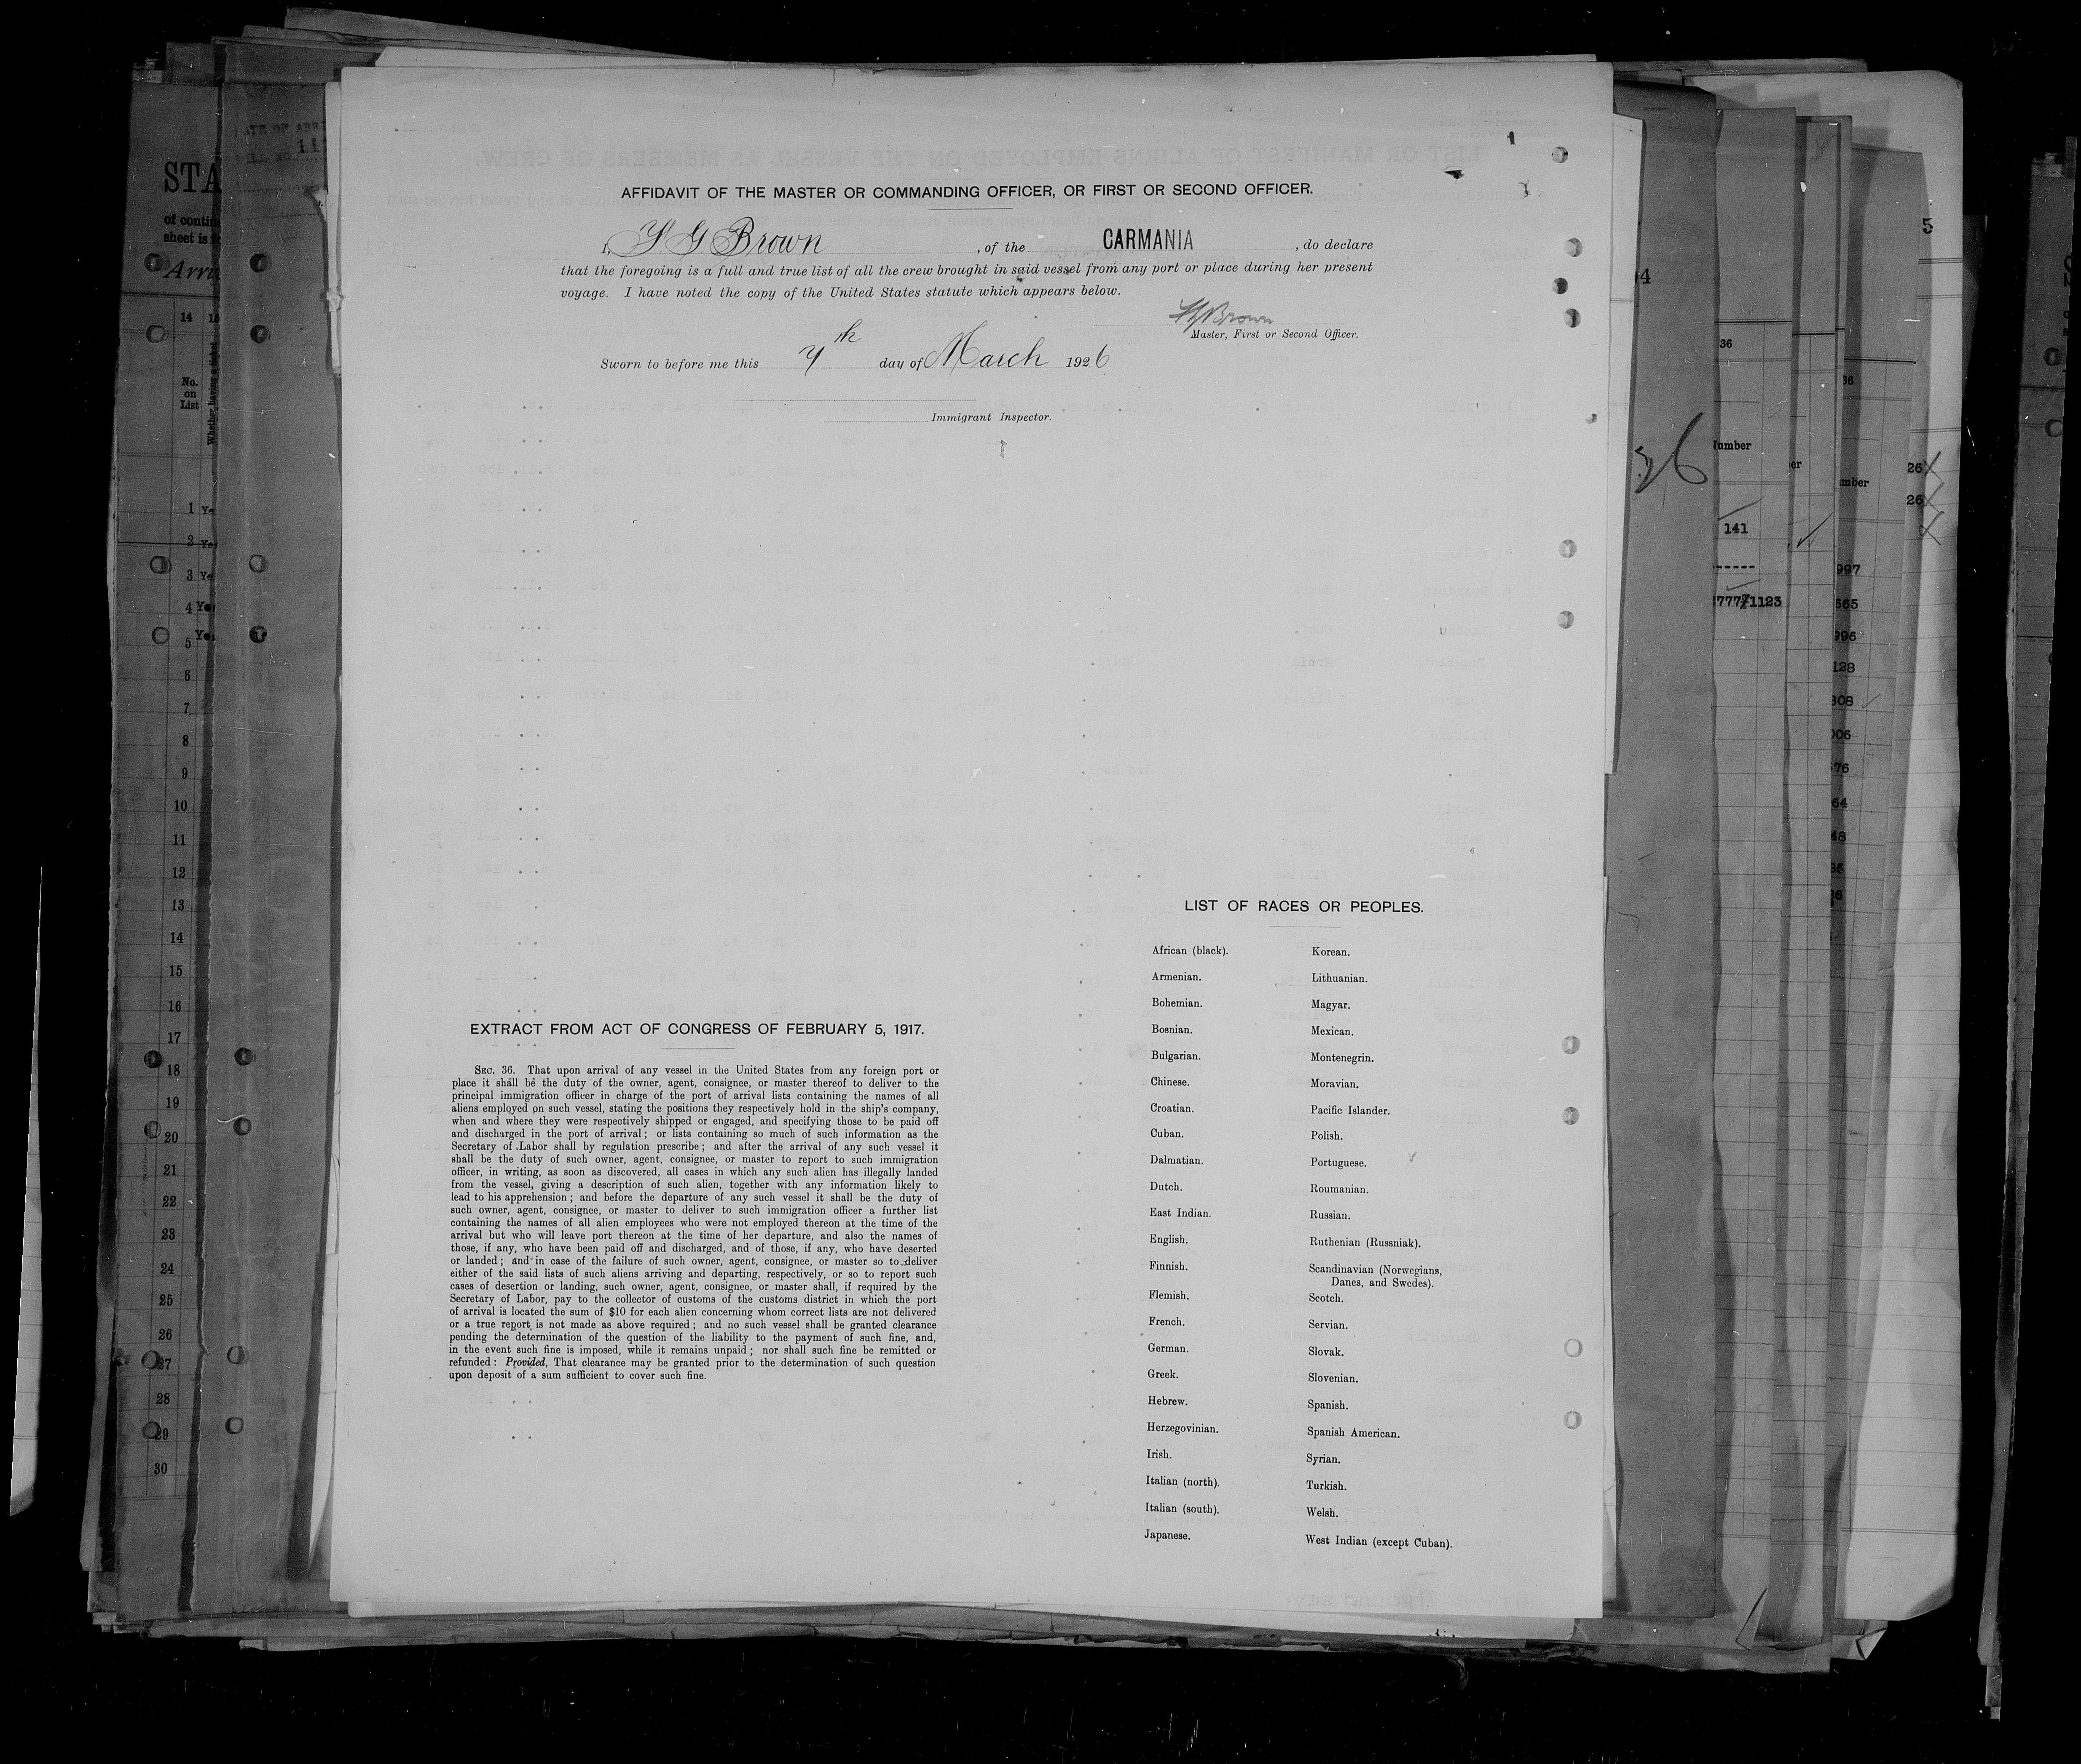 AFFIDAVIT OF THE MASTER OR COMMANDING OFFICER, OR FIRST OR SECOND OFFICER.
I, G Brown, of the CARMANIA, do declare
that the foregoing is a full and true list of all the crew brought in said vessel from any port or place during her present
voyage. I have noted the copy of the United States statute which appears below.
Brown
Master, First or Second Officer.
Sworn to before me this 7th day of March 1926
Immigrant Inspector.
EXTRACT FROM ACT OF CONGRESS OF FEBRUARY 5, 1917.
SEC. 36. That upon arrival of any vessel in the United States from any foreign port or
place it shall be the duty of the owner, agent, consignee, or master thereof to deliver to the
principal immigration officer in charge of the port of arrival lists containing the names of all
aliens employed on such vessel, stating the positions they respectively hold in the ship's company,
when and where they were respectively shipped or engaged, and specifying those to be paid off
and discharged in the port of arrival; or lists containing so much of such information as the
Secretary of Labor shall by regulation prescribe; and after the arrival of any such vessel it
shall be the duty of such owner, agent, consignee, or master to report to such immigration
officer, in writing, as soon as discovered, all cases in which any such alien has illegally landed
from the vessel, giving a description of such alien, together with any information likely to
lead to his apprehension; and before the departure of any such vessel it shall be the duty of
such owner, agent, consignee, or master to deliver to such immigration officer a further list
containing the names of all alien employees who were not employed thereon at the time of the
arrival but who will leave port thereon at the time of her departure, and also the names of
those, if any, who have been paid off and discharged, and of those, if any, who have deserted
or landed; and in case of the failure of such owner, agent, consignee, or master so to deliver
either of the said lists of such aliens arriving and departing, respectively, or so to report such
cases of desertion or landing, such owner, agent, consignee, or master shall, if required by the
Secretary of Labor, pay to the collector of customs of the customs district in which the port
of arrival is located the sum of $10 for each alien concerning whom correct lists are not delivered
or a true report is not made as above required; and no such vessel shall be granted clearance
pending the determination of the question of the liability to the payment of such fine, and,
in the event such fine is imposed, while it remains unpaid; nor shall such fine be remitted or
refunded: Provided, That clearance may be granted prior to the determination of such question
upon deposit of a sum sufficient to cover such fine.
LIST OF RACES OR PEOPLES.
African (black).
Armenian.
Bohemian.
Bosnian.
Bulgarian.
Chinese.
Croatian.
Cuban.
Dalmatian.
Dutch.
East Indian.
English.
Finnish.
Flemish.
French.
German.
Greek.
Hebrew.
Herzegovinian.
Irish.
Italian (north).
Italian (south).
Japanese.
Korean.
Lithuanian.
Magyar.
Mexican.
Montenegrin.
Moravian.
Pacific Islander.
Polish.
Portuguese.
Roumanian.
Russian.
Ruthenian (Russniak).
Scandinavian (Norwegians,
Danes, and Swedes).
Scotch.
Servian.
Slovak.
Slovenian.
Spanish.
Spanish American.
Syrian.
Turkish.
Welsh.
West Indian (except Cuban).
STA
of contin
sheet is
14 15
No.
on
List
1
2
3
4
5
6
7
8
9
10
11
12
13
14
15
16
17
18
19
20
21
22
23
24
25
26
27
28
29
30
36
141
1123